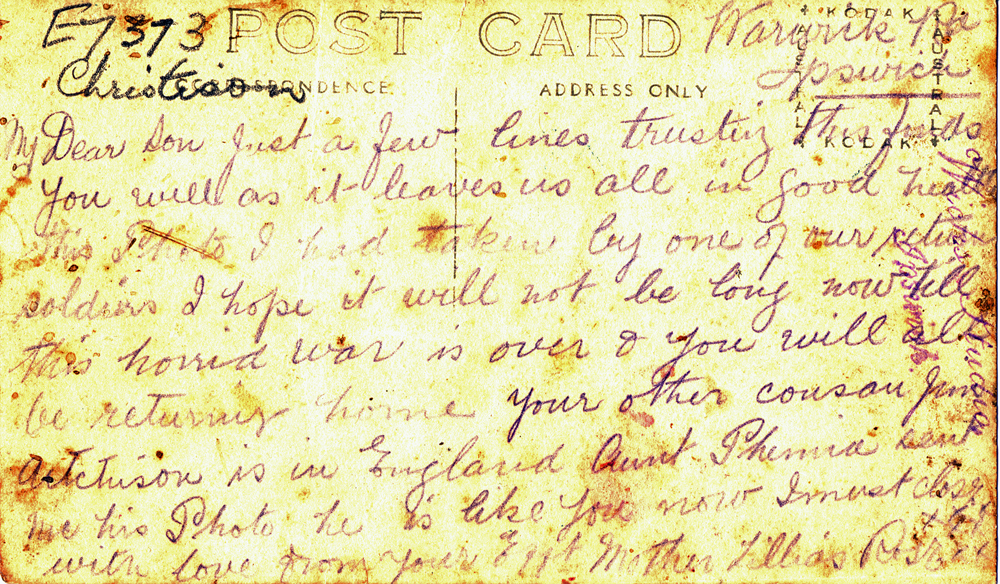 Ej 373
Christison
POST CARD
Warwick Rd
Ipswich
CORRESPONDENCE
ADDRESS ONLY
KODAK
AUSTRAL
KODAK
My Dear Son Just a few lines trusting this finds
You well as it leaves us all in good health
This Photo I had taken by one of our return
soldiers I hope it will not be long now till
this horrid war is over & you will all
be returning home your other cousan Jim
Aitchison is in England Aunt Phemia sent
me his Photo he is like you now I must close
with love from your Mother